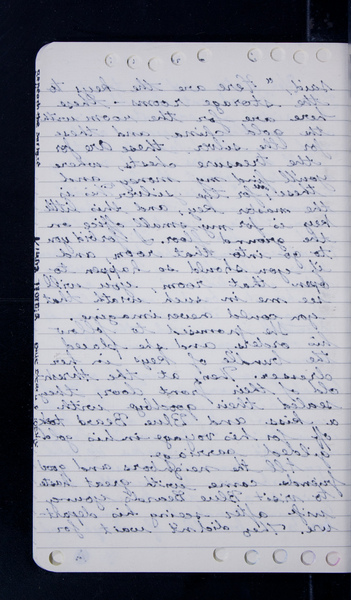 said, "Here are the keys to
the storage rooms - these
here are for the room with
the gold china, and these
for the silver. These are for
the treasure chests, where
you'll find my money, and
these, for the jewelry;
the master key; and this little
key is for my small office on
the ground floor. I forbid you
to go into that room, and
if you should so happen to
open that room, you will
see me in such wrath that
you could never imagine.
She promised to follow
his orders and she placed
the bundle of keys in her
dresser. Then, at the thresh-
old of their front door, they
sealed their goodbye with
a kiss, and Blue Beard took
off for his voyage in his gold
gilded carriage.
All the neighbors and good
friends came with great haste
to visit Blue Beard's young
wife after seeing his depart-
ure. They didn't wait for